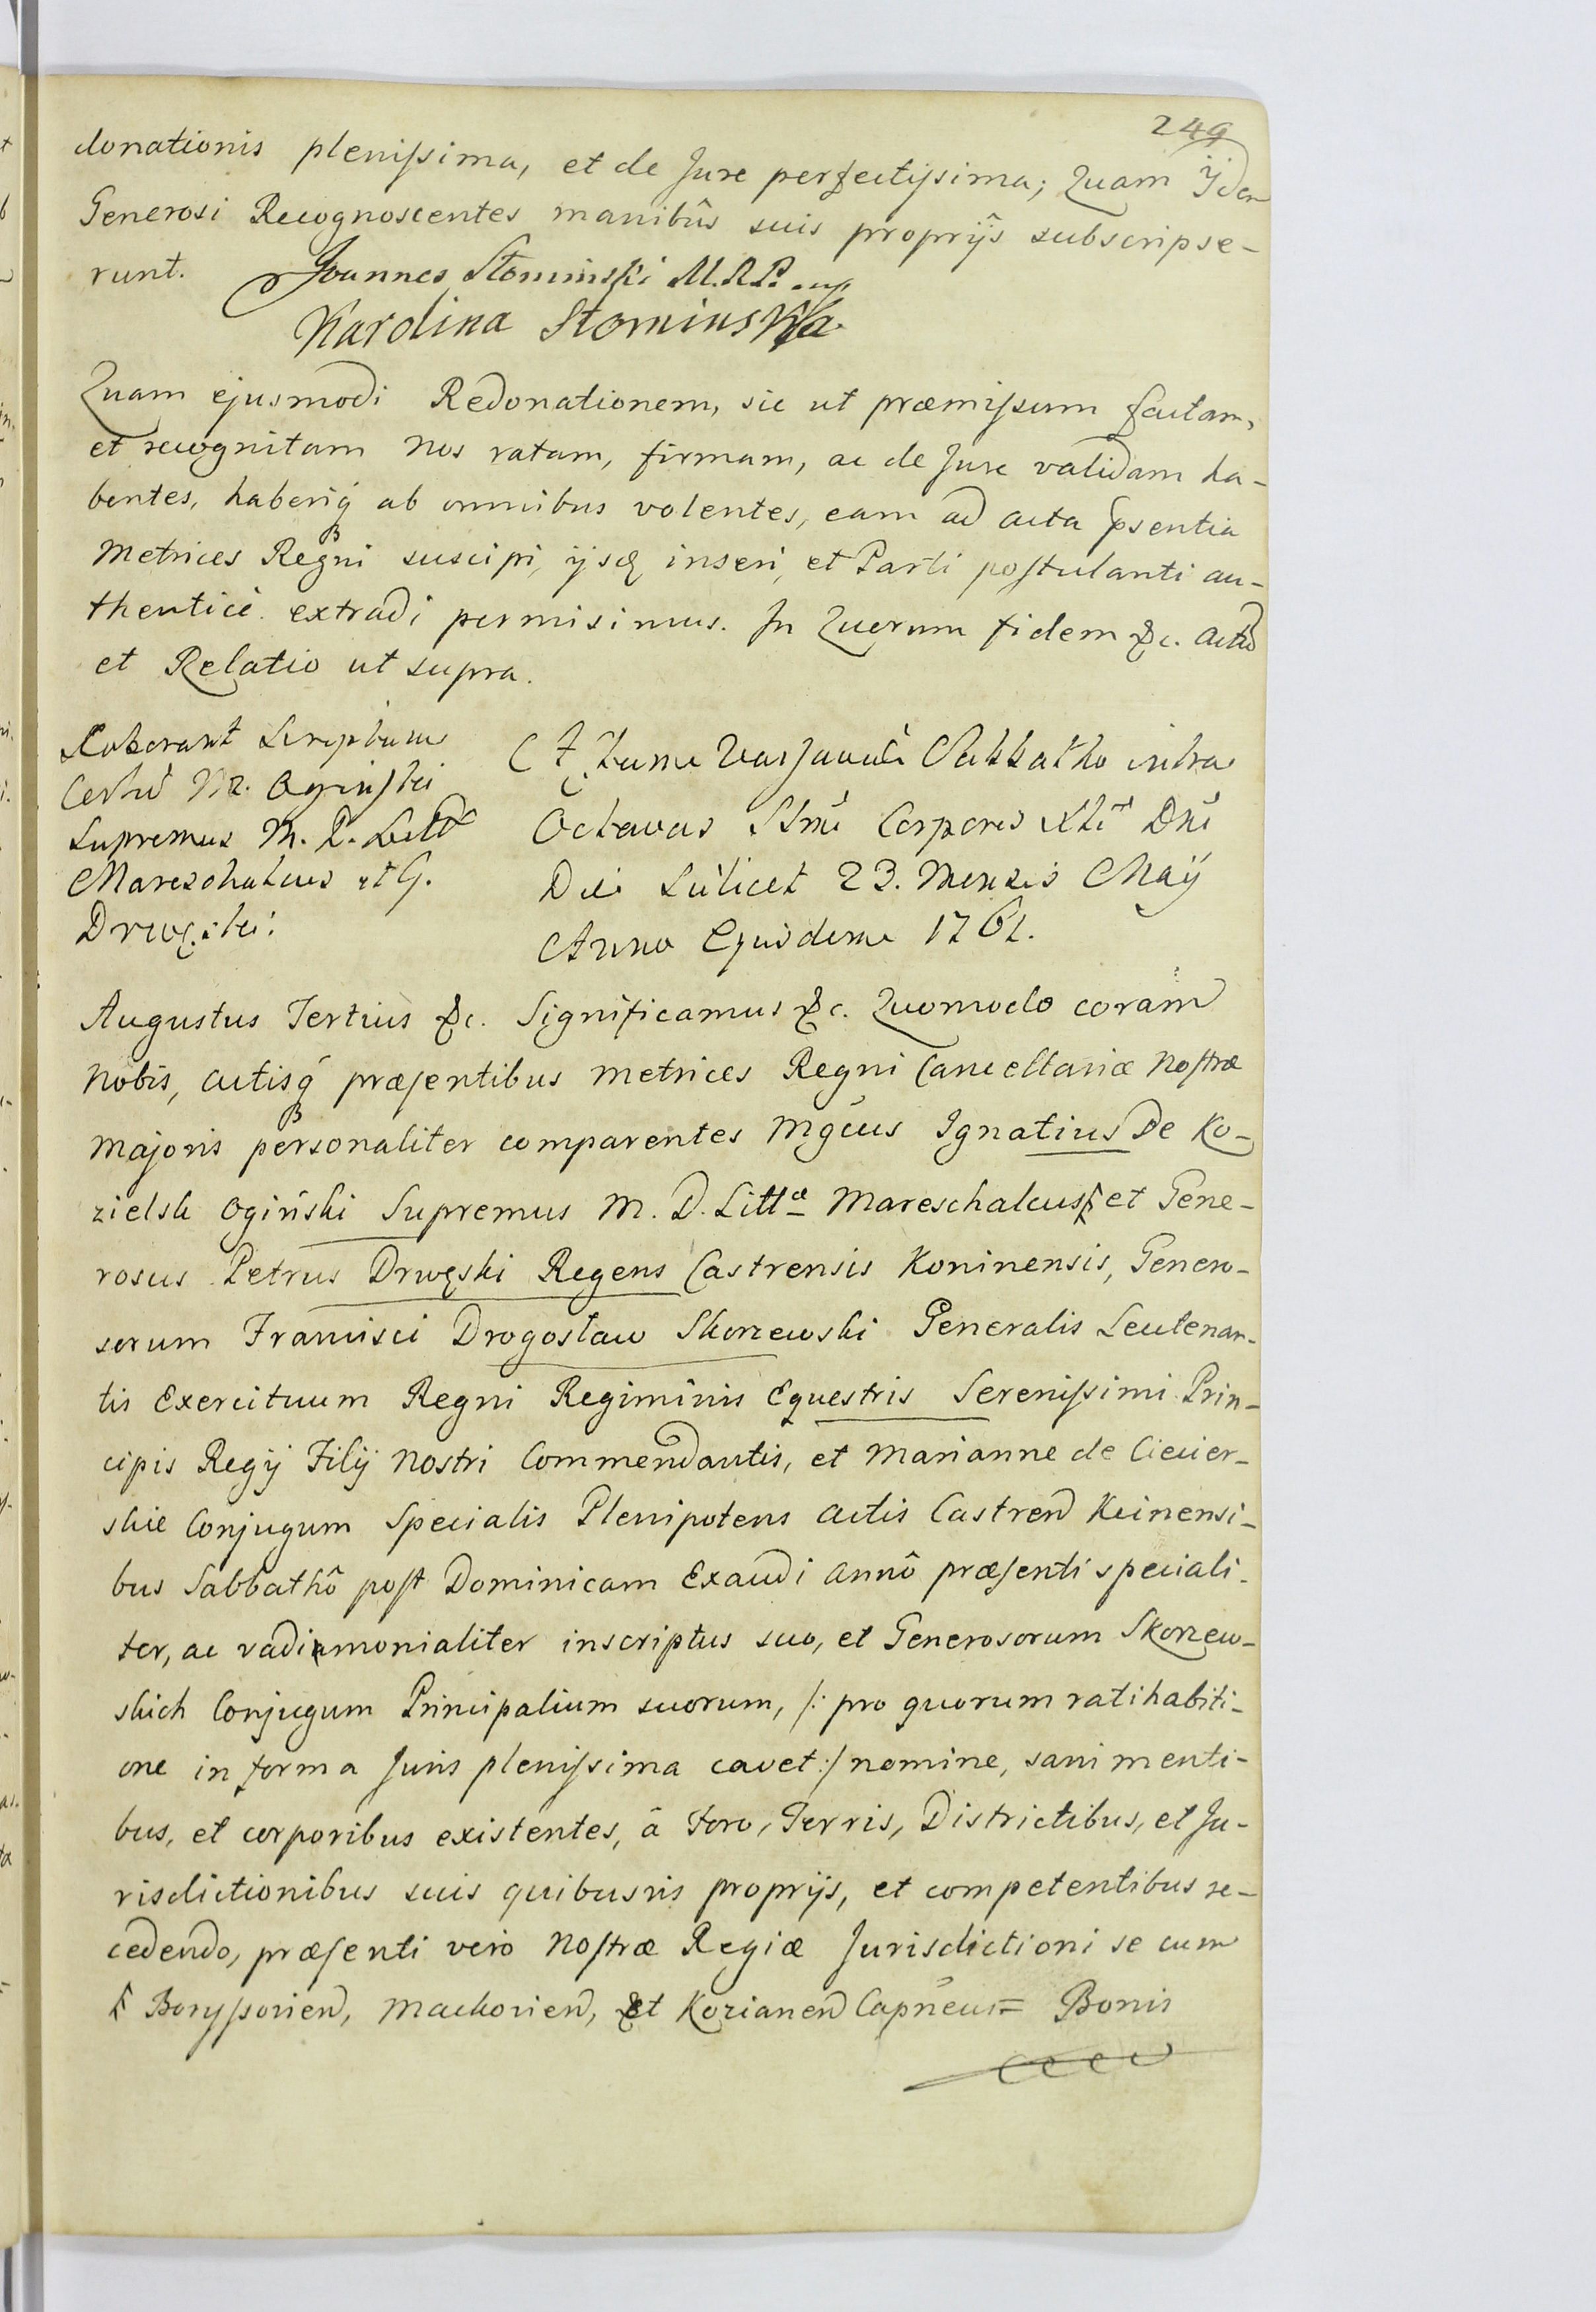 249
donationis plenissima, et de Jure perfectissima; Quam ijdem
Generosi Recognoscentes manibûs suis proprijs subscripse-
runt. Joannes Słominski M.R.P. mp
Karolina Słominska
Quam ejusmodi Redonationem, sic ut præmissum factam,
et recognitam Nos ratam, firmam, ac de Jure validam ha-
bentes, haberiq́ ab omnibus volentes, eam ad acta psentia
Metrices Regni suscipi, ijsq inseri, et Parti postulanti au-
thenticè extradi permisimus. In Quorum fidem &c. actū
et Relatio ut supra.
Roborant Scriptum
Oginski
Supremus M. D. Litt
Mareschalcus et G.
Drwęski
Actum Varsaviæ Sabbatho intra
Octavas SSmi Corporis Xti Dni
Die Scilicet 23. Mensis Maij
Anno Ejusdem 1761.
Augustus Tertius &c. Significamus &c. Quomodo coram
Nobis, actisq́ præsentibus Metrices Regni Cancellariæ Nostræ
Majoris personaliter comparentes Mgcus Ignatius De Ko-
zielsk Ogiński Supremus M. D. Littæ Mareschalcus et Gene-
rosus Petrus Drwęski Regens Castrensis Koninensis, Genero-
sorum Francisci Drogosław Skorzewski Generalis Leutenan-
tis Exercituum Regni Regiminis Equestris Serenissimi Prin-
cipis Regij Filij Nostri Commendantis, et Marianne de Ciecier-
skie Conjugum Specialis Plenipotens Actis Castren Kcinensi-
bus Sabbathô post Dominicam Exaudi Annô præsenti speciali-
ter, ac vadimonialiter inscriptus suo, et Generosorum Skorzew-
skich Conjugum Principalium suorum, /: pro quorum ratihabiti-
one in forma Juris plenissima cavet :/ nomine, sani menti-
bus, et corporibus existentes, â Foro, Terris, Districtibus, et Ju-
risdictionibus suis quibusvis proprijs, et competentibus re-
cedendo, præsenti vero Nostræ Regiæ Jurisdictioni se cum
Boryssovien, Mackovien, et Kozianen Capneus= Bonis